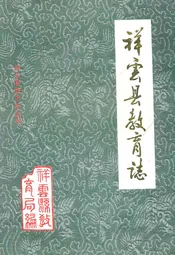 祥雲县教育誌
祥雲縣教
育局編